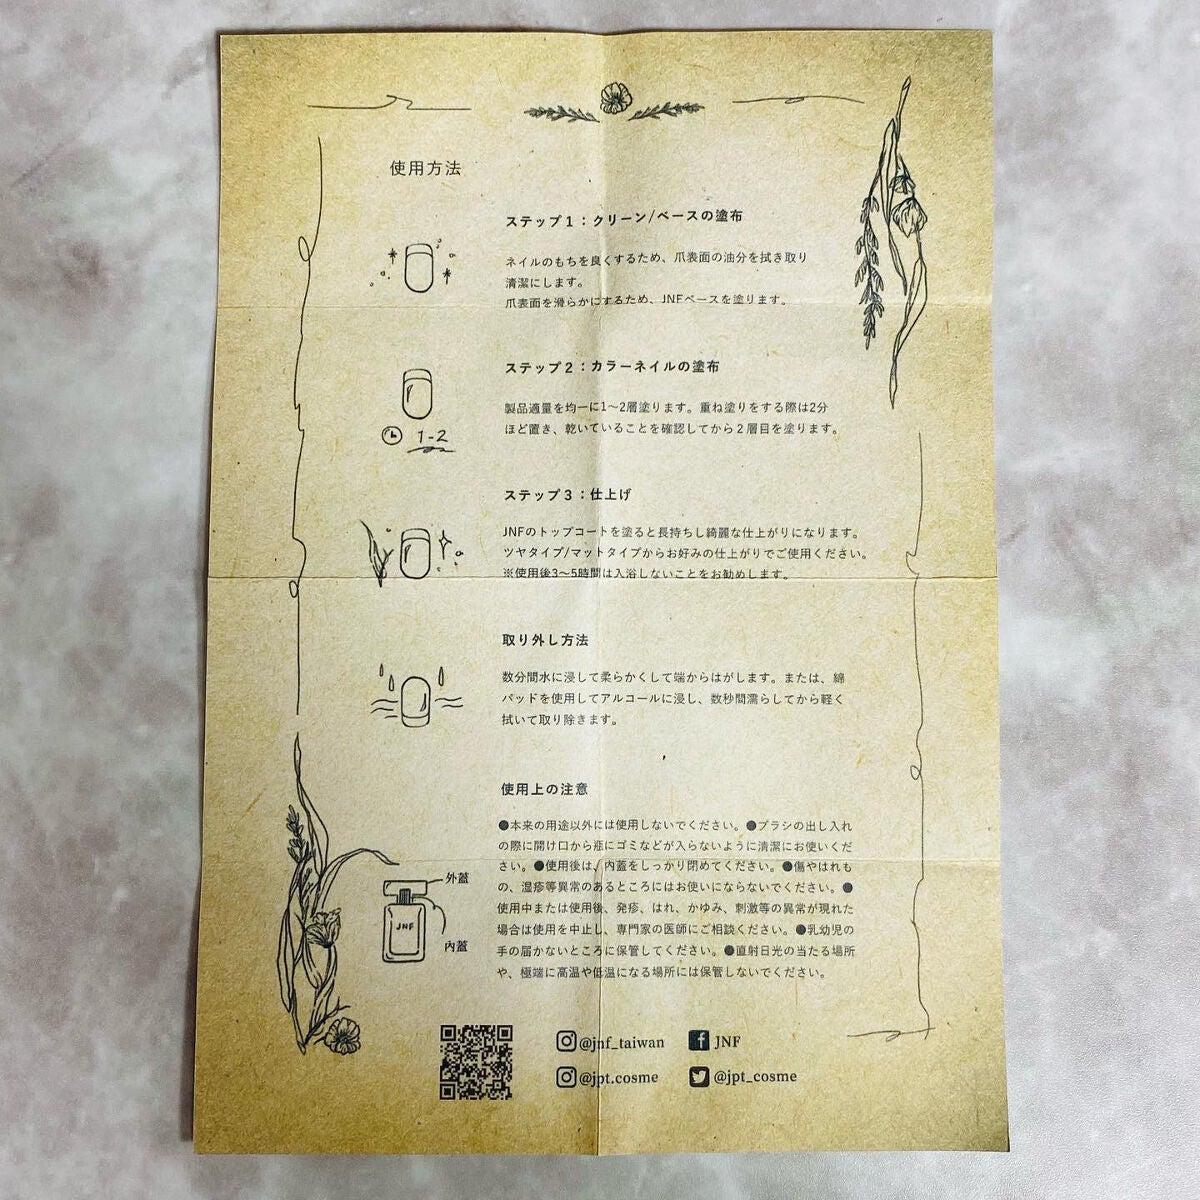 使用方法
ステップ1：クリーン/ベースの塗布
ネイルのもちを良くするため、爪表面の油分を拭き取り
清潔にします。
爪表面を滑らかにするため、JNFベースを塗ります。
ステップ2：カラーネイルの塗布
製品適量を均一に1〜2層塗ります。重ね塗りをする際は2分
ほど置き、乾いていることを確認してから２層目を塗ります。
1-2
ステップ3：仕上げ
JNFのトップコートを塗ると長持ちし綺麗な仕上がりになります。
ツヤタイプ/マットタイプからお好みの仕上がりでご使用ください。
※使用後3〜5時間は入浴しないことをお勧めします。
取り外し方法
数分間水に浸して柔らかくして端からはがします。または、綿
パッドを使用してアルコールに浸し、数秒間濡らしてから軽く
拭いて取り除きます。
使用上の注意
●本来の用途以外には使用しないでください。●ブラシの出し入れ
の際に開け口から瓶にゴミなどが入らないように清潔にお使いくだ
さい。●使用後は、内蓋をしっかり閉めてください。●傷やはれも
の、湿疹等異常のあるところにはお使いにならないでください。●
使用中または使用後、発疹、はれ、かゆみ、刺激等の異常が現れた
場合は使用を中止し、専門家の医師にご相談ください。●乳幼児の
手の届かないところに保管してください。●直射日光の当たる場所
や、極端に高温や低温になる場所には保管しないでください。
外蓋
JNF
内蓋
@jnf_taiwan
JNF
@jpt.cosme
@jpt_cosme